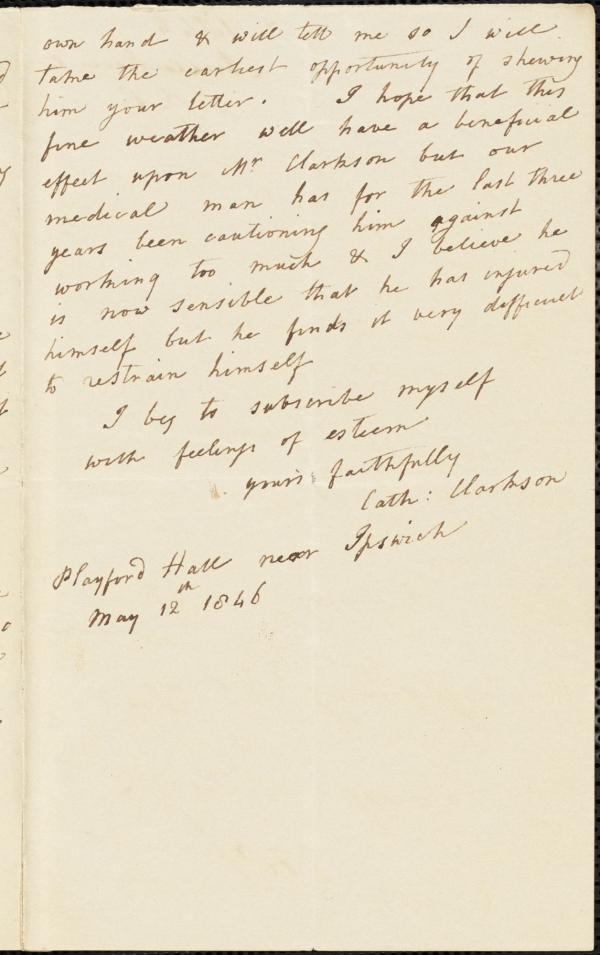 own hand & will tell me so I will
take the earliest opportunity of shewing
him your letter. I hope that this
fine weather will have a beneficial
effect upon Mr Clarkson but our
medical man has for the last three
years been cautioning him against
working too much & I believe he
is now sensible that he has injured
himself but he finds it very difficult
to restrain himself
I beg to subscribe myself
with feelings of esteem
yours faithfully
Cath: Clarkson
Playford Hall near Ipswich
May 12th 1846